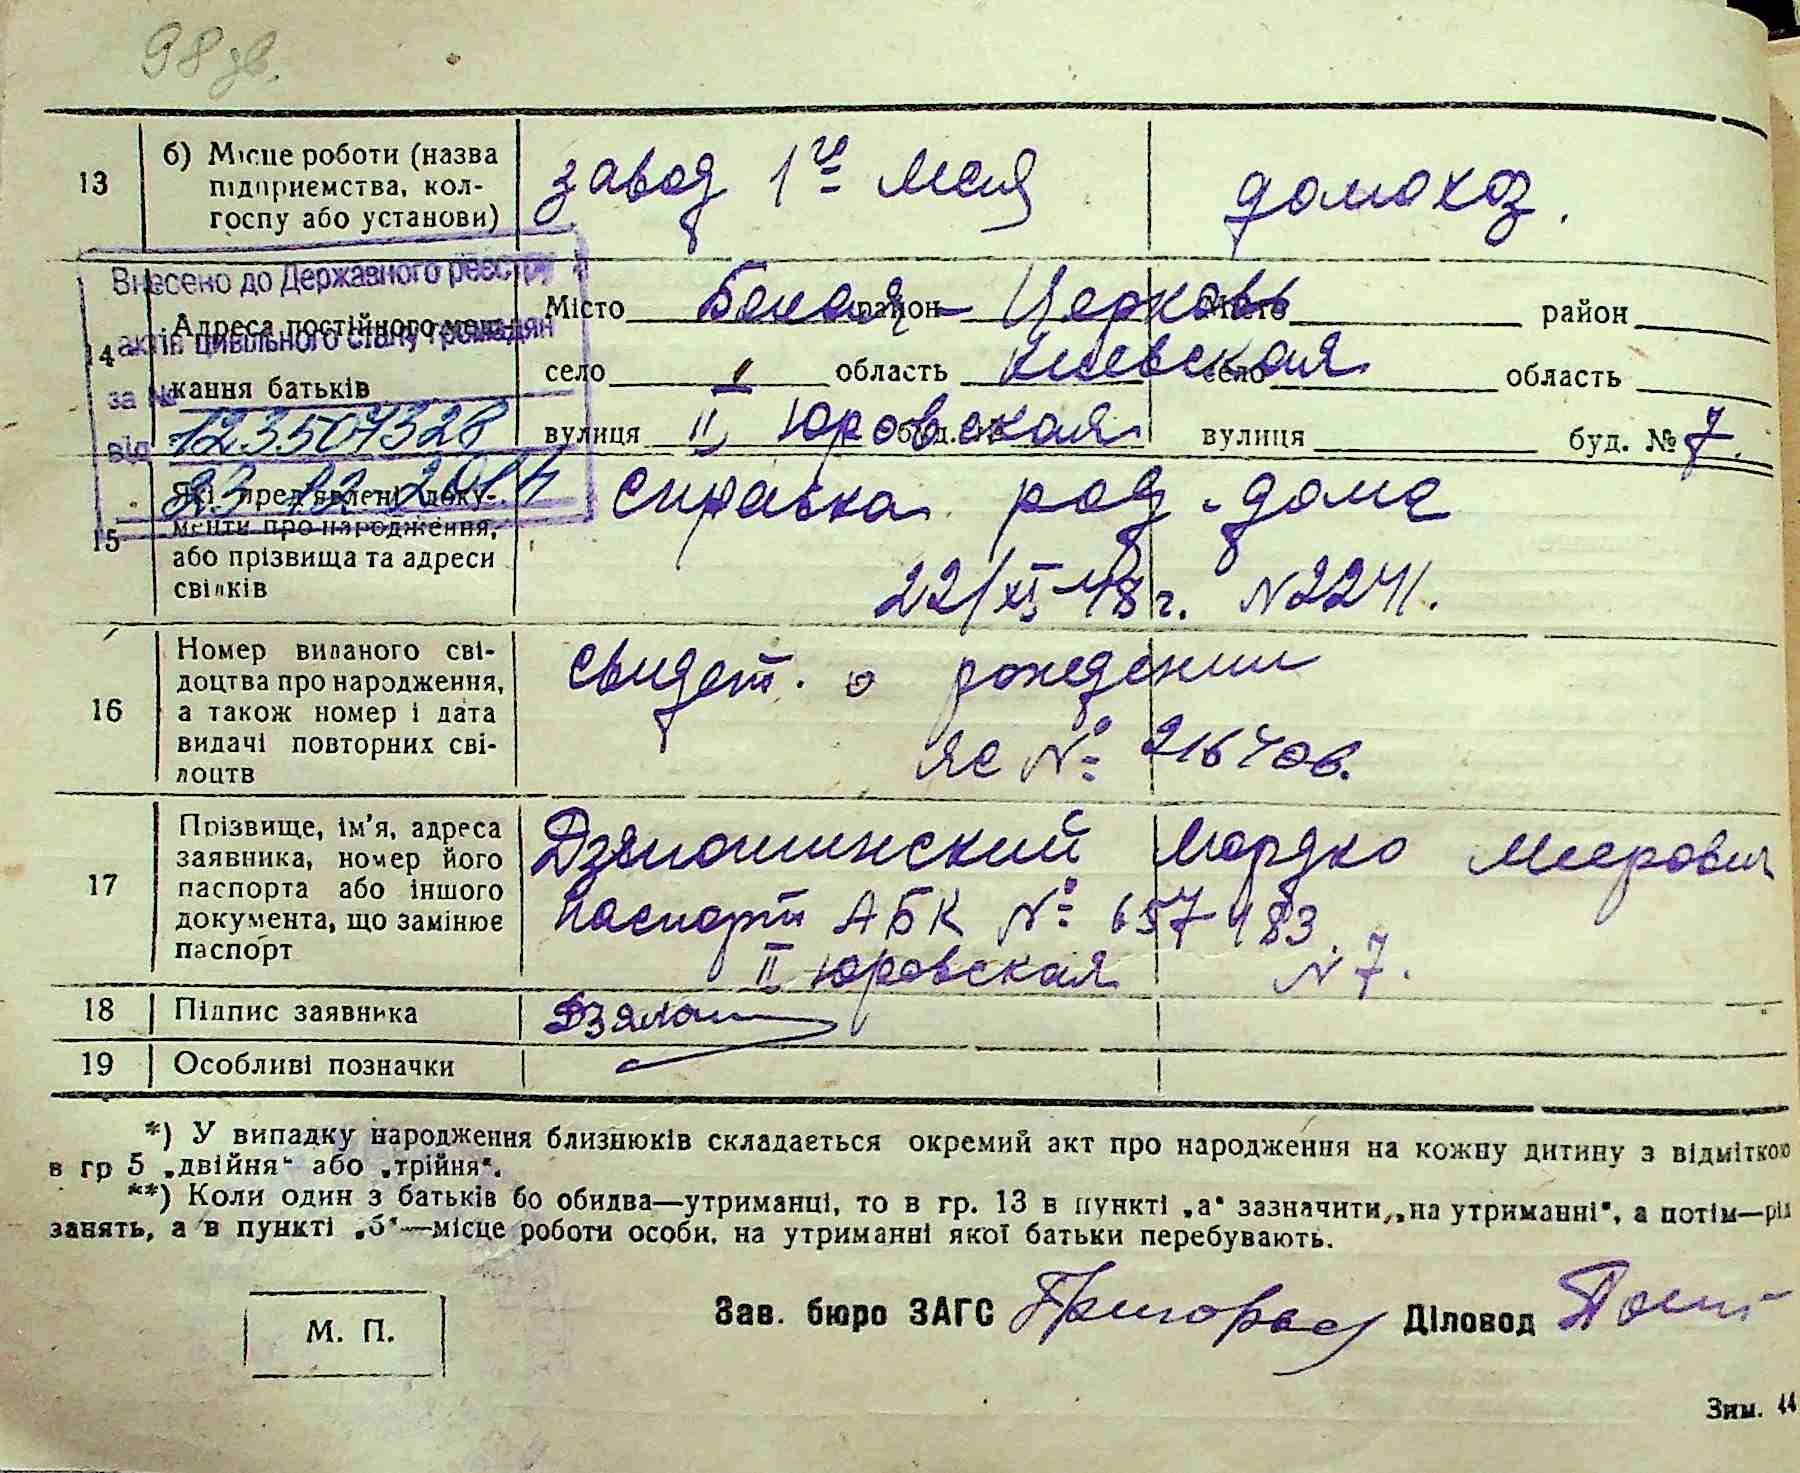 98 зв.
13 б) Місце роботи (назва підприємства, колгоспу або установи) завод 1го Мая домохоз.
Внесено до Державного реєстру
актів цивільного стану громадян
за №
від 23.12.2014
14 Адреса постійного мешкання батьків
Місто Белая район Церковь Місто район
село область Киевская село область
вулиця II Юровская буд. № вулиця буд. № 7.
15 Які пред'явлені документи про народження, або прізвища та адреси свідків
справка род. дома
22/XI-48 г. N 2241.
16 Номер виданого свідоцтва про народження, а також номер і дата видачі повторних свідоцтв
свидет. о рождении
ЯС №
17 Прізвище, ім'я, адреса заявника, номер його паспорта або іншого документа, що замінює паспорт
Дзялошинский Мордко Меерович
паспорт АБК № 657183.
II Юровская N 7.
18 Підпис заявника Дзялош
19 Особливі позначки
*) У випадку народження близнюків складається окремий акт про народження на кожну дитину з відміткою
в гр 5 „двійня“ або „трійня“.
**) Коли один з батьків бо обидва—утриманці, то в гр. 13 в пункті „а“ зазначити „на утриманні“, а потім—рід
занять, а в пункті „б“—місце роботи особи, на утриманні якої батьки перебувають.
М. П.
Зав. бюро ЗАГС Діловод
Зим. 44